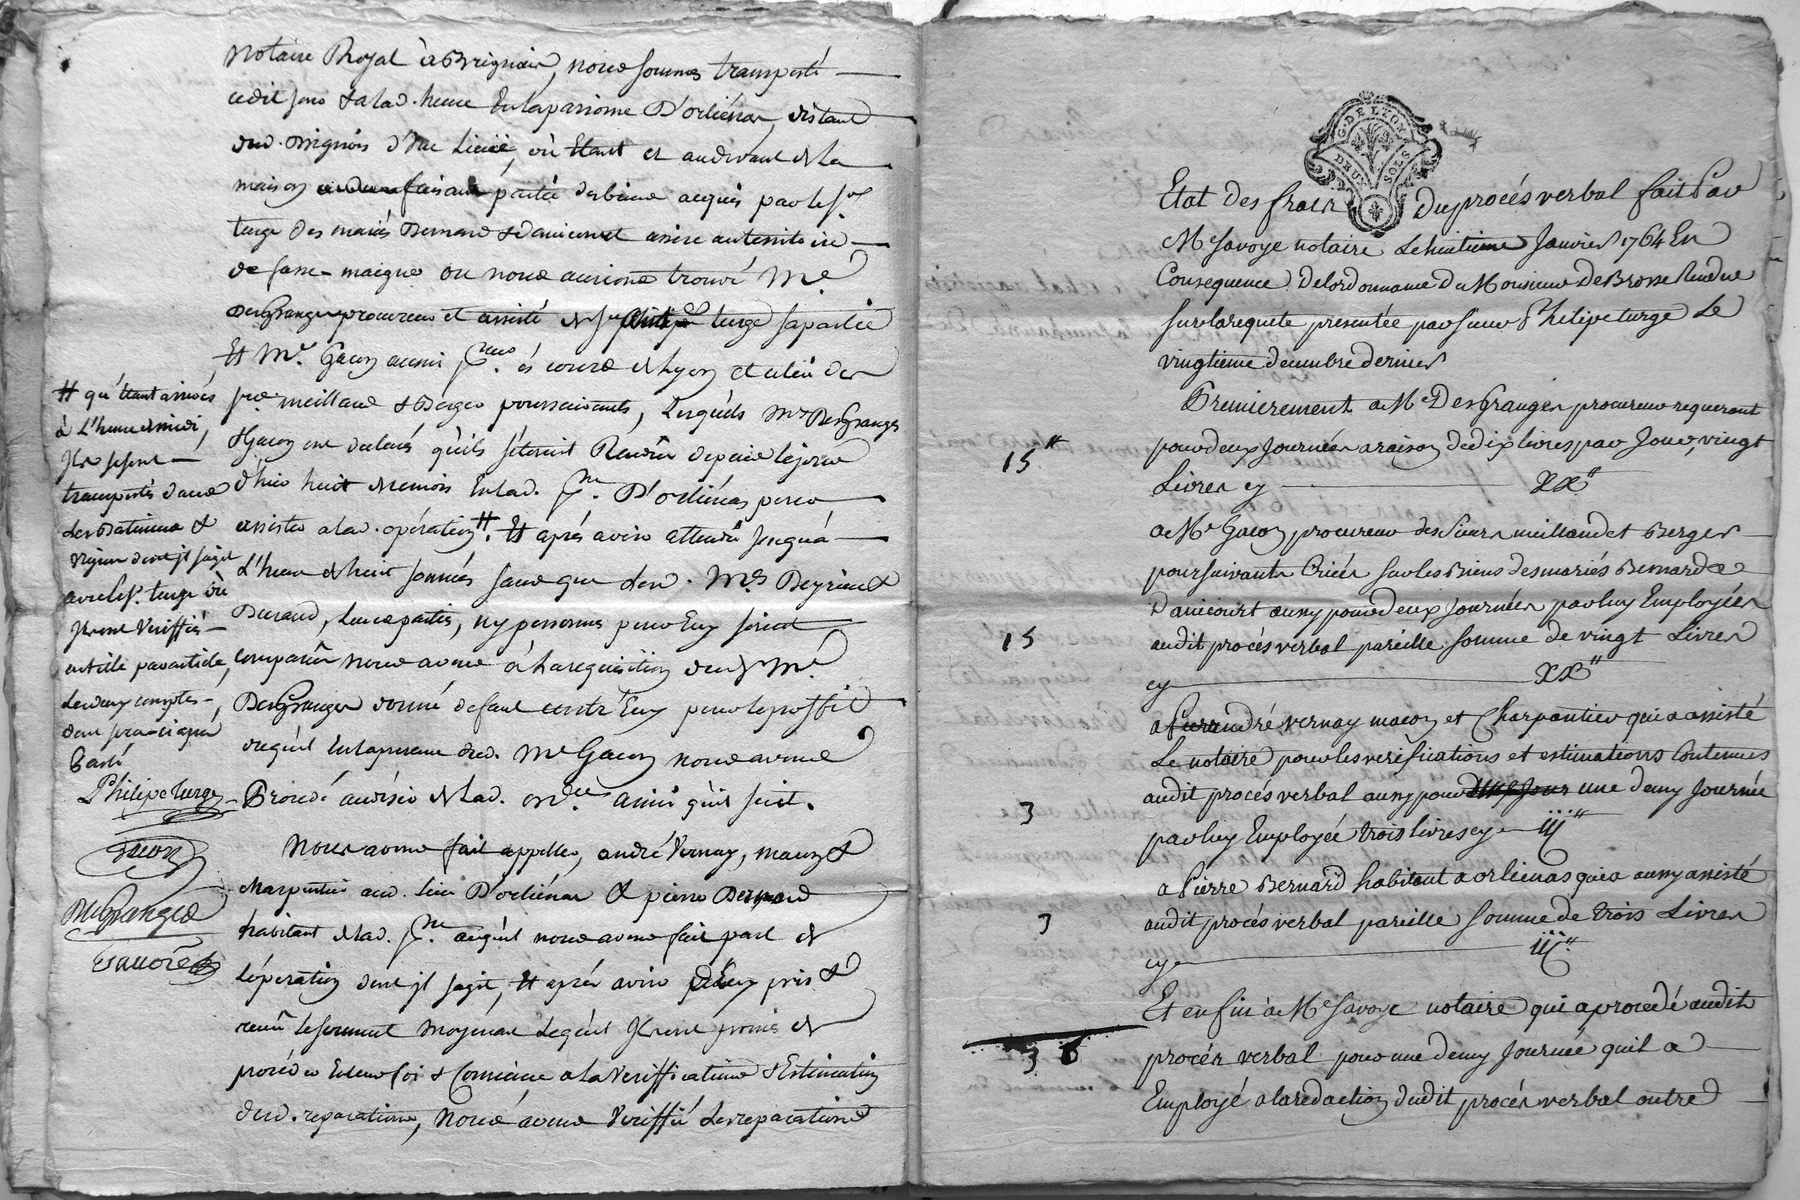 Notaire Royal à Brignais, nous sommes transporté
cedit jour & alad. heure En la parroisse D'orliénas, distant
dud. Brignais d'Une Lieüe, où Etant et audevant de La
maison faisant partie des biens acquis par le Sr.
turge des mariés Bernard & Danicourt assise au territoire
de fasse-maigne ou nous aurions trouvé Me.
DesGranges procureur et assisté de Sr philipe turge sa partie
Et Me. Gacon aussi Preur. és cours de Lyon et celui des
Srs. meilland & Berger poursuivants, Lesquels Mes DesGranges
& Gacon ont declarés qu'ils s'étoient Rendûs depuis le jour
d'hier huit du mois En lad. Psse. D'orliénas pour
assister a lad. opération #. Et aprés avoir attendû jusqu'á
L'heure de huit sonnées sans que Lesd. Mes
Durand, Leurs parties, ny personnes pour Eux soient
comparûs nous avons á La requisition dud. Me.
DesGranges donné defaut contr'Eux pour le proffit
duquel En la presence dud. Me Gacon nous avons
Procédé au désir de lad. ordce. ainsi qu'il suit.
Nous avons fait appeller, andré Vernay, maçon &
charpentier aud. lieu D'orliénas & pierre Bernard
habitant de lad. Psse. auquel nous avons fait part de
L'opération dont jl s'agit, Et aprés avoir d'Eux pris &
reçû le serment moyenant Lequel Jls ont promis de
proceder En Leur foi & Consience a La Veriffication & Estimation
desd. reparations, Nous avons Veriffié Les reparations
# qu'étant arrivés
à L'heure de midi,
Jls se sont
transportés dans
Les Batiments &
vignes dont jl s'agit
avec le Sr. turge où
Jls ont Veriffiés
entr'elle par article,
Les deux comptes
dont sera ci aprés
Parlé
Philipe turge
Gacon
DesGranges
Esavoie
G. DE LYON
DEUX SOLS
Etat des frais du procés verbal fait Par
Me Savoye notaire Le huitieme Janvier 1764 En
Consequence De lordonnance De Monsieur De Brosse Rendue
sur la requete presentée par Sieur Philipe turge Le
vingtieme decembre dernier
Premierement a Me DesGranges procureur requerant
pour deux Journées a raison de dix livres par Jour, vingt
15#
Livres cy xx#
a Me Gacon procureur des Sieurs meilland et Berger
poursuivants Criées sur les Biens des mariés Bernard &
Danicourt aussy pour deux Journées par luy Employées
15
audit procés verbal pareille somme de vingt Livres
cy xx#
a Sieur andré vernay macon et Charpantier qui a assisté
Le notaire pour les verifications et estimations Contenues
audit procés verbal aussy pour une Jour une demy Journée
3
par luy Employée trois livres cy iij#
a Pierre Bernard habitant a orlienas qui a aussy assisté
3
audit procés verbal pareille somme de trois Livres
cy iij#
Et enfin à Me Savoye notaire qui a procedé audit
36
procés verbal pour une demy Journée quil a
Employé a la redaction dudit procés verbal outre